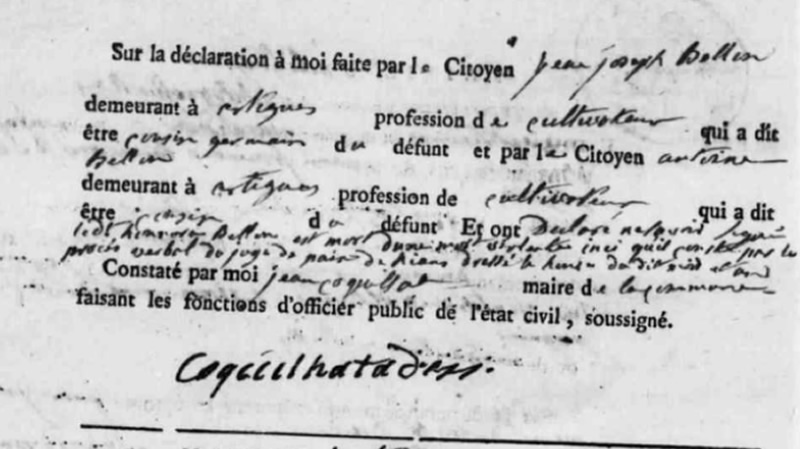 Sur la déclaration à moi faite par le Citoyen jean joseph Bellon
demeurant à artigues profession de cultivateur qui a dit
être cousin germain du défunt et par le Citoyen antoine
Bellon
demeurant à artigues profession de cultivateur qui a dit
être cousin du défunt Et ont Déclaré ne savoir signé
ledt Bellon est mort dune mort violante inci quil conste par le
procès verbal du juge de paix de Rians dressé le du dit mois et an
Constaté par moi jean Coquilhat maire de la commune
faisant les fonctions d'officier public de l'état civil, soussigné.
Coquilhat